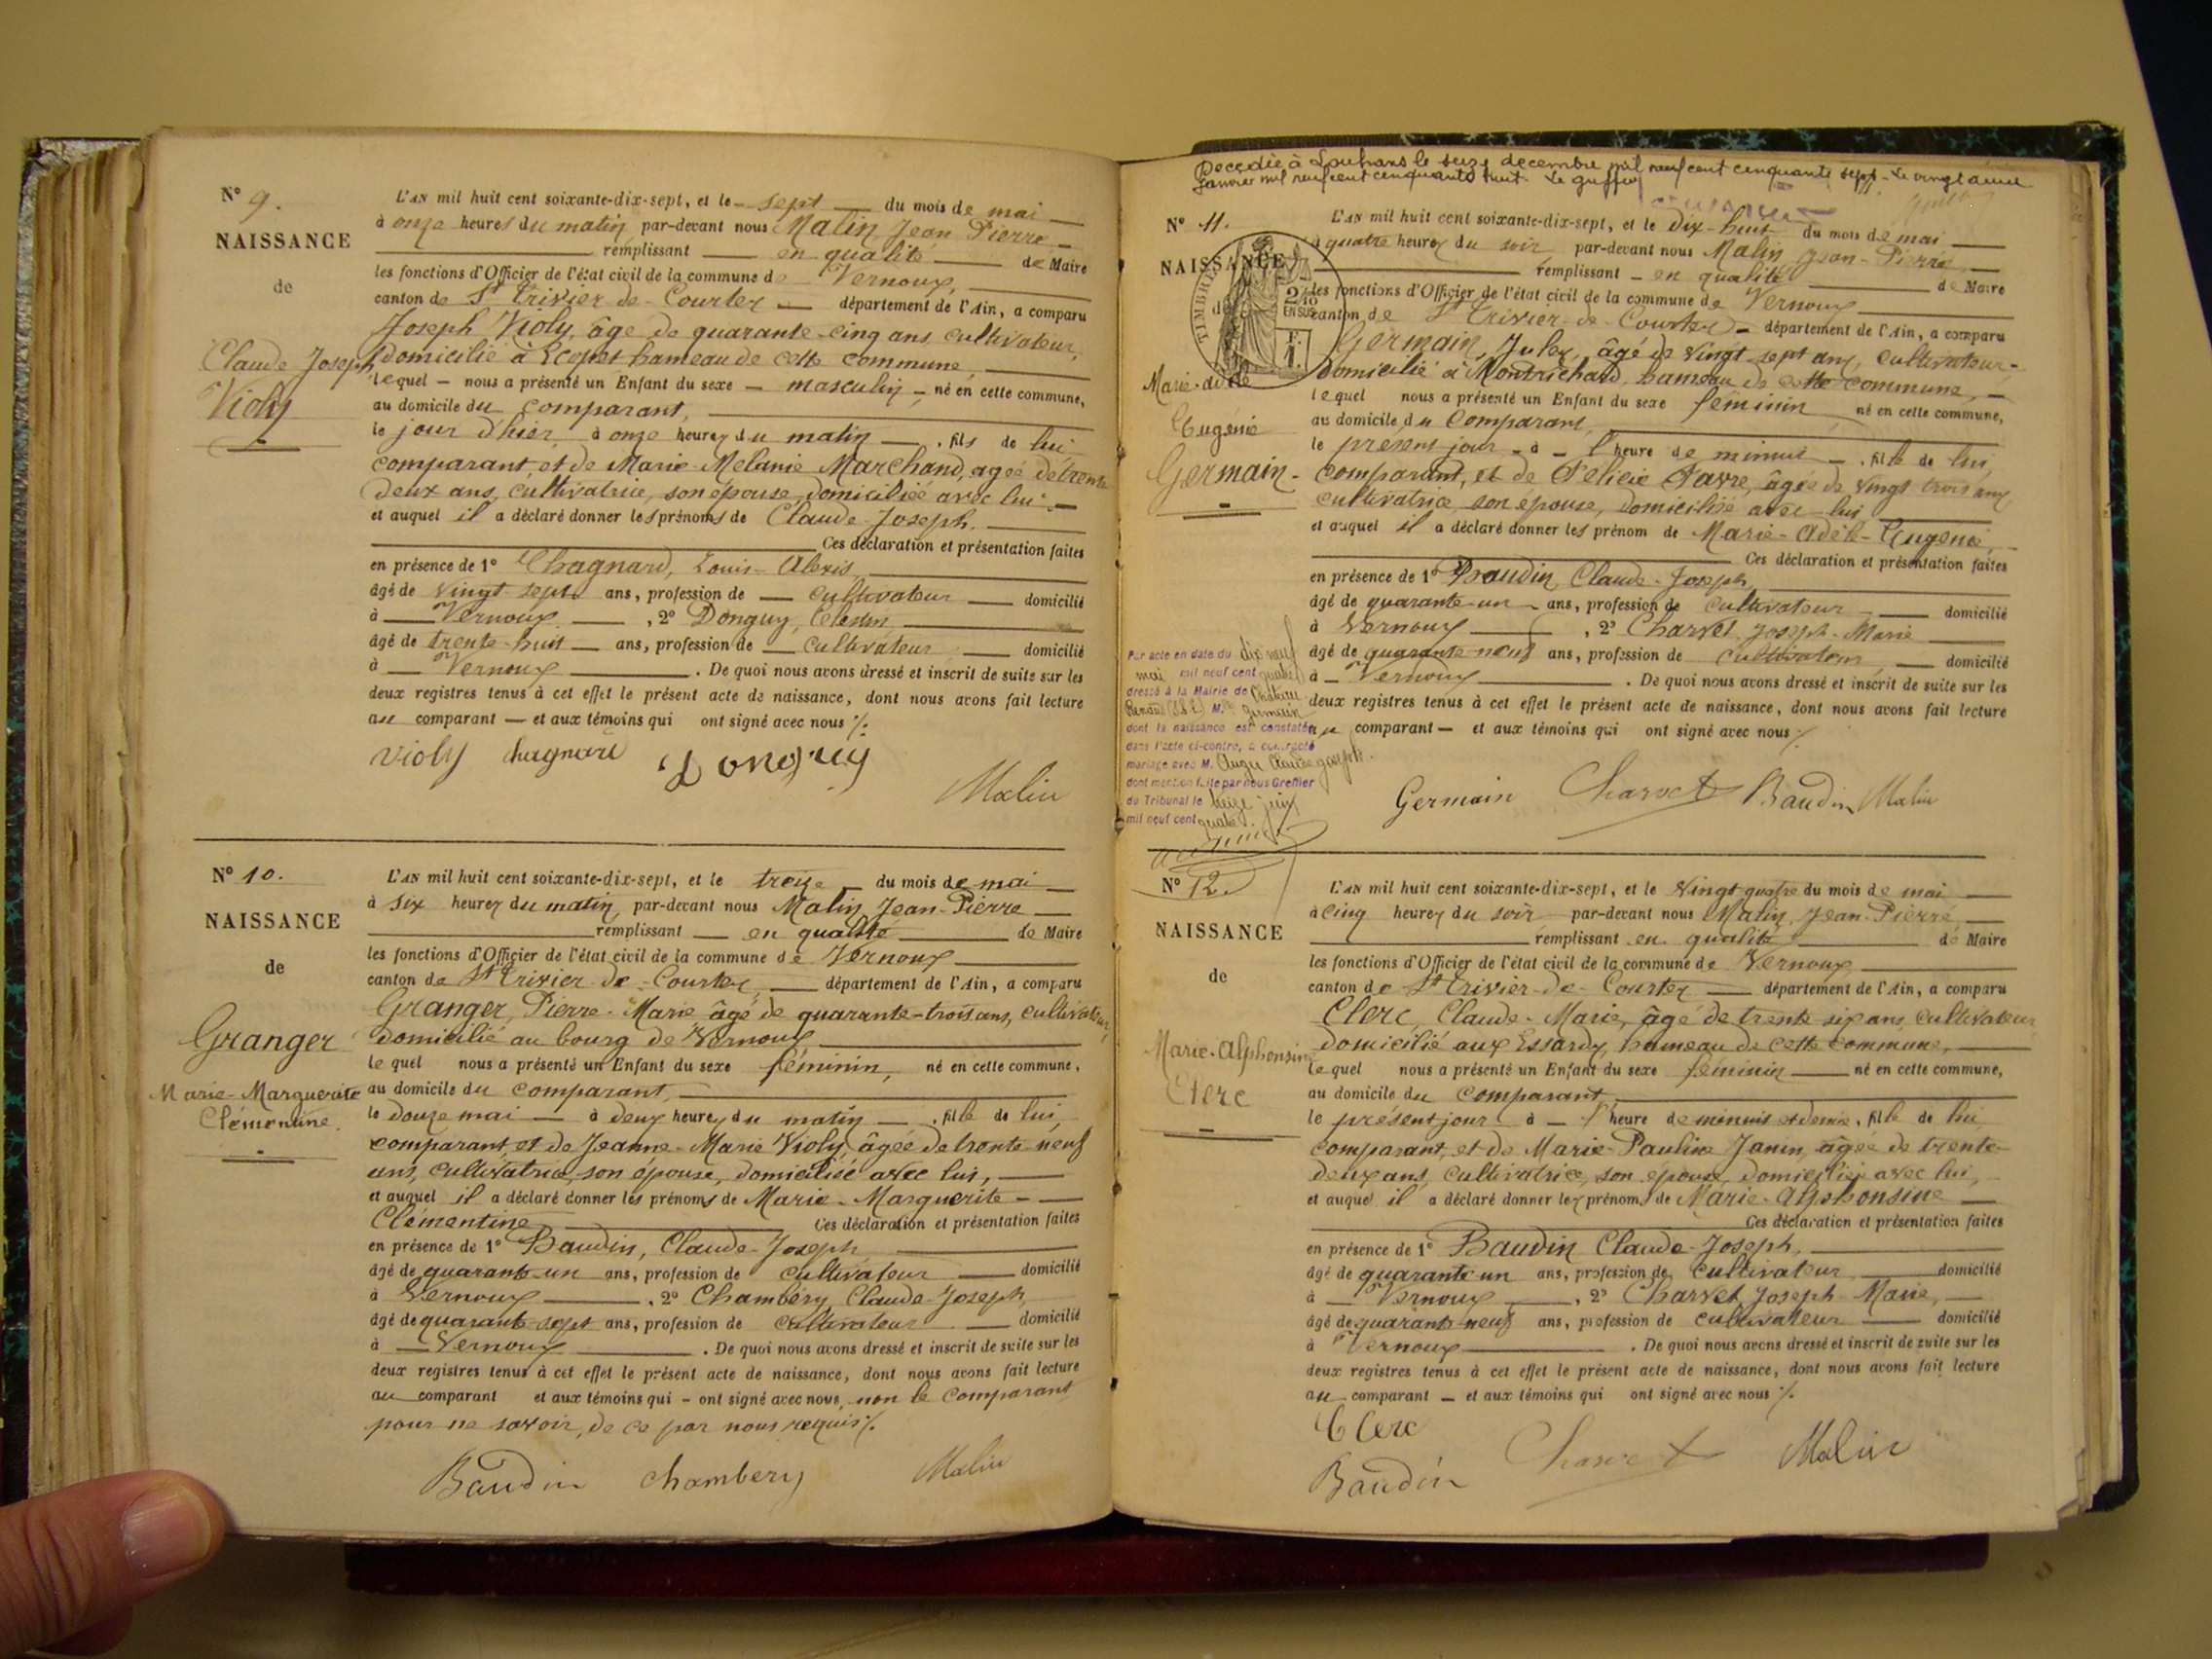 N° 9.
NAISSANCE
de
Claude Joseph
Violy
L'AN mil huit cent soixante-dix-sept, et le sept du mois de mai
à onze heures du matin par-devant nous Malin, Jean Pierre
remplissant en qualité de Maire
les fonctions d'Officier de l'état civil de la commune de Vernoux,
canton de St Trivier-de-Courtes département de l'Ain, a comparu
Joseph Violy, âgé de quarante-cinq ans, cultivateur,
domicilié à hameau de cette commune,
lequel nous a présenté un Enfant du sexe masculin né en cette commune,
au domicile du comparant,
le jour d'hier à onze heures du matin, fils de lui
comparant, et de Marie Melanie Marchand, agée de trente
deux ans, cultivatrice, son épouse, domiciliée avec lui
et auquel il a déclaré donner les prénoms de Claude-Joseph.
Ces déclaration et présentation faites
en présence de 1° Chagnard, Louis-Alexis,
âgé de vingt-sept ans, profession de cultivateur domicilié
à Vernoux, 2° Donguy,
âgé de trente-huit ans, profession de cultivateur domicilié
à Vernoux. De quoi nous avons dressé et inscrit de suite sur les
deux registres tenus à cet effet le présent acte de naissance, dont nous avons fait lecture
au comparant — et aux témoins qui ont signé avec nous ./.
Violy Chagnard Donguy
Malin
N° 10.
NAISSANCE
de
Granger
Marie-Marguerite
Clémentine.
L'AN mil huit cent soixante-dix-sept, et le treize du mois de mai
à six heures du matin, par-devant nous Malin, Jean-Pierre
remplissant en qualité de Maire
les fonctions d'Officier de l'état civil de la commune de Vernoux
canton de St Trivier-de-Courtes département de l'Ain, a comparu
Granger, Pierre-Marie âgé de quarante-trois ans, cultivateur,
domicilié au bourg de Vernoux
lequel nous a présenté un Enfant du sexe féminin, né en cette commune,
au domicile du comparant,
le douze mai à deux heures du matin, fille de lui
comparant, et de Jeanne-Marie Violy, âgée de trente-neuf
ans, cultivatrice, son épouse, domiciliée avec lui,
et auquel il a déclaré donner les prénoms de Marie-Marguerite-
Clémentine Ces déclaration et présentation faites
en présence de 1° Baudin, Claude-Joseph
âgé de quarante-un ans, profession de cultivateur domicilié
à Vernoux, 2° Chambéry, Claude-Joseph,
âgé de quarante-sept ans, profession de cultivateur domicilié
à Vernoux. De quoi nous avons dressé et inscrit de suite sur les
deux registres tenus à cet effet le présent acte de naissance, dont nous avons fait lecture
au comparant et aux témoins qui - ont signé avec nous, non le comparant
pour ne savoir, de ce par nous requis ./.
Baudin Chambery Malin
Decedée à Louhans le seize decembre mil neuf cent cinquante sept - Le vingt deux
Janvier mil neuf cent cinquante huit. Le greffier
N° 11.
NAISSANCE
de
TIMBRE
2/10
EN SUS
Marie-Adèle
Eugénie
Germain
L'AN mil huit cent soixante-dix-sept, et le dix-huit du mois de mai
à quatre heures du soir par-devant nous Malin Jean-Pierre,
remplissant - en qualité de Maire
les fonctions d'Officier de l'état civil de la commune de Vernoux
canton de St Trivier-de-Courtes département de l'Ain, a comparu
Germain, Jules, âgé de vingt-sept ans, cultivateur
domicilié à Montrichard, hameau de cette commune,
lequel nous a présenté un Enfant du sexe féminin né en cette commune,
au domicile du comparant,
le présent jour - à - l'heure de minuit, fille de lui,
comparant, et de Félicie Favre, âgée de vingt trois ans
cultivatrice, son épouse, domiciliée avec lui
et auquel il a déclaré donner les prénom de Marie-Adèle-Eugénie,
Ces déclaration et présentation faites
en présence de 1° Baudin, Claude-Joseph,
âgé de quarante-un ans, profession de cultivateur domicilié
à Vernoux, 2° Charvet, Joseph-Marie
âgé de quarante-neuf ans, profession de cultivateur domicilié
à Vernoux. De quoi nous avons dressé et inscrit de suite sur les
deux registres tenus à cet effet le présent acte de naissance, dont nous avons fait lecture
au comparant — et aux témoins qui ont signé avec nous ./.
Germain Charvet Baudin Malin
Par acte en date du dix neuf
mai mil neuf cent quatre
dressé à la Mairie de Château
Renaud (S.&L.) Mlle Germain
dont la naissance est constatée
dans l'acte ci-contre, a contracté
mariage avec M. Claude Joseph.
dont mention faite par nous Greffier
du Tribunal le treize juin
mil neuf cent quatre.
N° 12.
NAISSANCE
de
Marie-Alphonsine
Clerc
L'AN mil huit cent soixante-dix-sept, et le vingt quatre du mois de mai
à cinq heures du soir par-devant nous Malin, Jean-Pierre
remplissant en qualité de Maire
les fonctions d'Officier de l'état civil de la commune de Vernoux
canton de St Trivier-de-Courtes département de l'Ain, a comparu
Clerc, Claude-Marie, âgé de trente-six ans, cultivateur
domicilié aux Essards, hameau de cette commune,
lequel nous a présenté un Enfant du sexe féminin né en cette commune,
au domicile du comparant,
le présent jour à - l'heure de minuit et demie, fille de lui,
comparant, et de Marie-Pauline Janin, âgée de trente-
deux ans, cultivatrice, son épouse, domiciliée avec lui,
et auquel il a déclaré donner les prénoms de Marie-Alphonsine
Ces déclaration et présentation faites
en présence de 1° Baudin Claude-Joseph,
âgé de quarante-un ans, profession de cultivateur domicilié
à Vernoux, 2° Charvet, Joseph-Marie,
âgé de quarante-neuf ans, profession de cultivateur domicilié
à Vernoux. De quoi nous avons dressé et inscrit de suite sur les
deux registres tenus à cet effet le présent acte de naissance, dont nous avons fait lecture
au comparant — et aux témoins qui ont signé avec nous ./.
Clerc
Baudin Charvet Malin